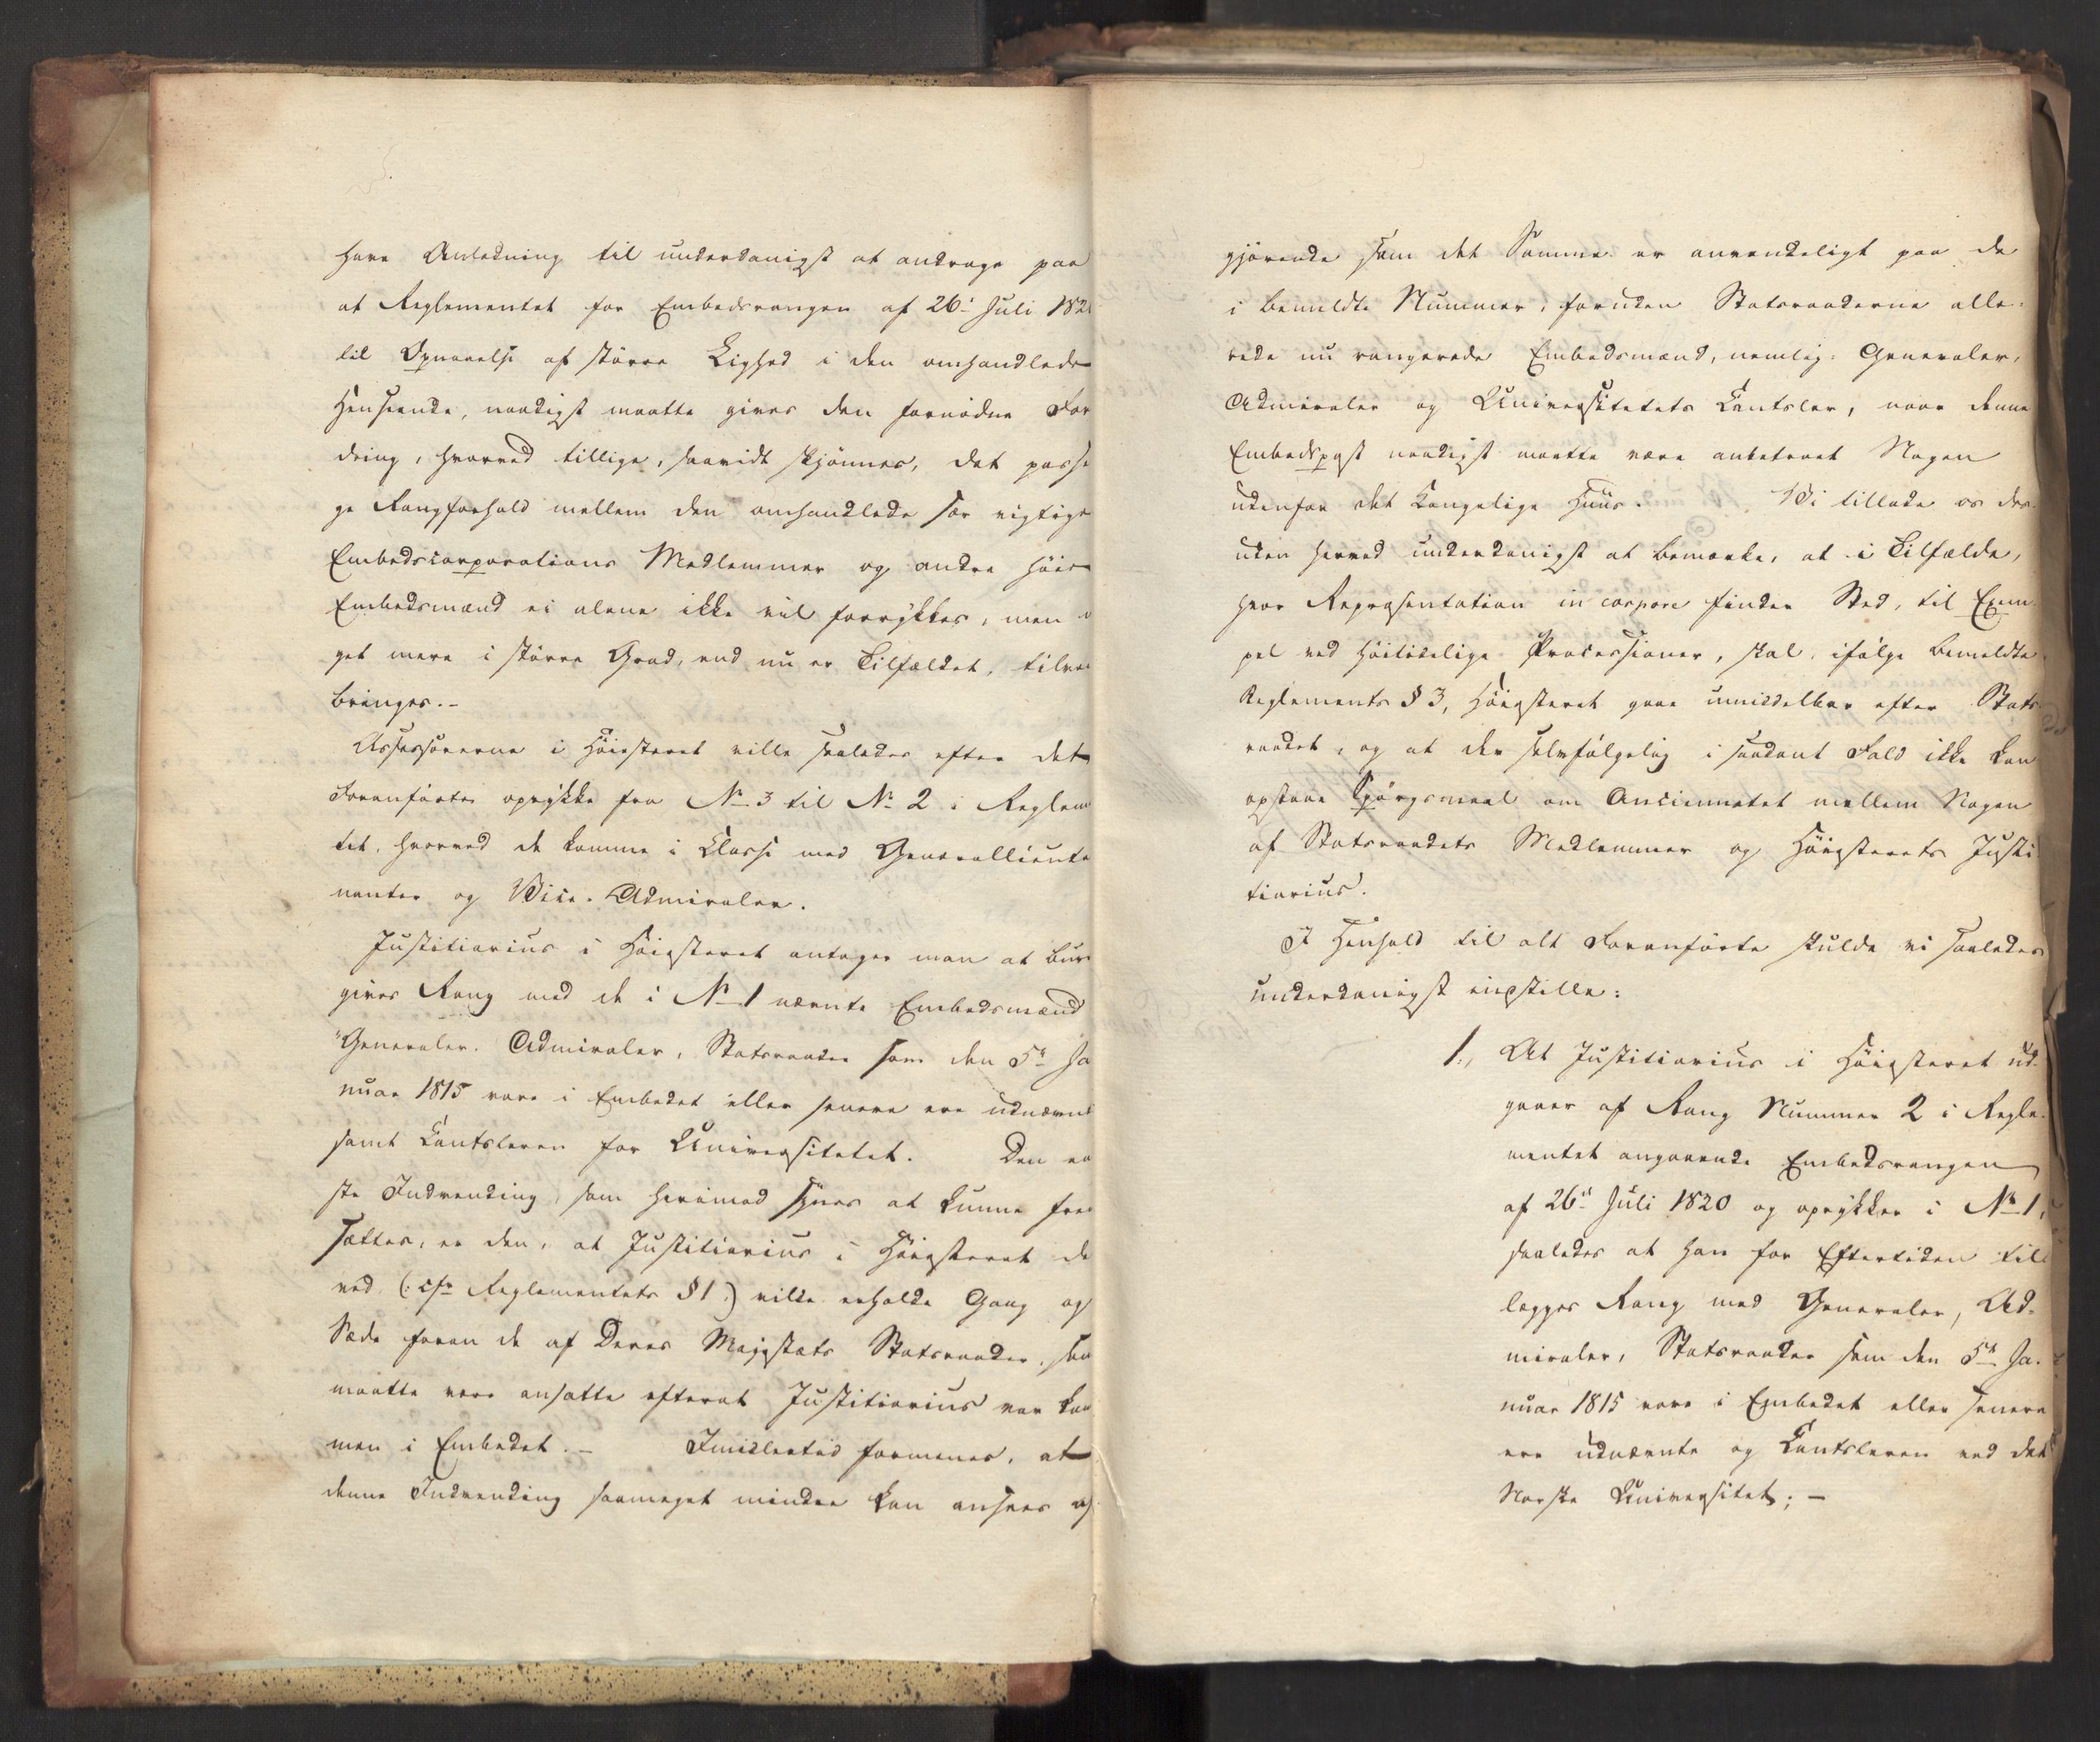 have Anledning til underdanigst at andrage paa
at Reglementet for Embedsrangen af 26de Juli 182
til Opnaaelse af större Lighed i den omhandlede
Henseende, naadigst maatte gives den fornödne For
dring, hvorved tillige, saavidt skjönnes, det passe
ge Rangforhold mellem den omhandlede saa vigtige
Embedscorporations Medlemmer og andre höie
Embedsmænd ei alene ikke vil forrykkes, men
get mere i större Grad, end nu er Tilfældet, tilveie
bringes.-
Assessorerne i Höiesteret ville saaledes efter det
Foranförte oprykke fra No 3 til No 2 i Reglem
tet, hvorved de komme i Classe med Generallieute
nanter og Vice-Admiraler.
Justitiarius i Höiesteret antager man at burde
gives Rang med de i No 1 nævnte Embedsmænd
"Generaler, Admiraler, Statsraader som den 5te Ja
nuar 1815 vare i Embedet eller senere ere udnævnt
samt Cantsleren for Universitetet. Den en
ste Indvending, som herimod synes at kunne frem
sættes, er den, at Justitiarius i Höiesteret de
ved (: cfr Reglementets § 1 :) vilde erholde Gang og
Sæde foran de af Deres Majestæts Statsraader, saa
maatte være ansatte efterat Justitiarius var kom
men i Embedet.- Imidlertid formenes, at
denne Indvending saameget mindre kan ansees af
gjörende som det Samme er anvendeligt paa de
i bemeldte Nummer, foruden Statsraaderne alle-
rede nu rangerede Embedsmænd, nemlig: Generaler,
Admiraler og Universitetets Cantsler, naar denne
Embedspost naadigst maatte være anbetroet Nogen
udenfor det Kongelige Huus. Vi tillade os des-
uden herved underdanigst at bemærke, at i Tilfælde,
hvor Repræsentation in corpore finder Sted, til Exem-
pel ved Höitidelige Processioner, skal, ifölge bemeldte
Reglements § 3, Höiesteret gaae umiddelbar efter Stats-
raadet, og at der selvfölgelig i saadant Fald ikke kan
opstaae Spörgsmaal om Anciennetet mellem Nogen
af Statsraadets Medlemmer og Höiesterets Justi-
tiarius.
I Henhold til alt Foranförte skulde vi saaledes
underdanigst indstille:
1., At Justitiarius i Höiesteret ud-
gaaer af Rang Nummer 2 i Regle-
mentet angaaende Embedsrangen
af 26de Juli 1820 og oprykker i No 1,
saaledes at han for Eftertiden til-
lægges Rang med Generaler, Ad-
miraler, Statsraader som den 5te Ja-
nuar 1815 vare i Embedet eller senere
ere udnævnte og Cantsleren ved det
Norske Universitet; -